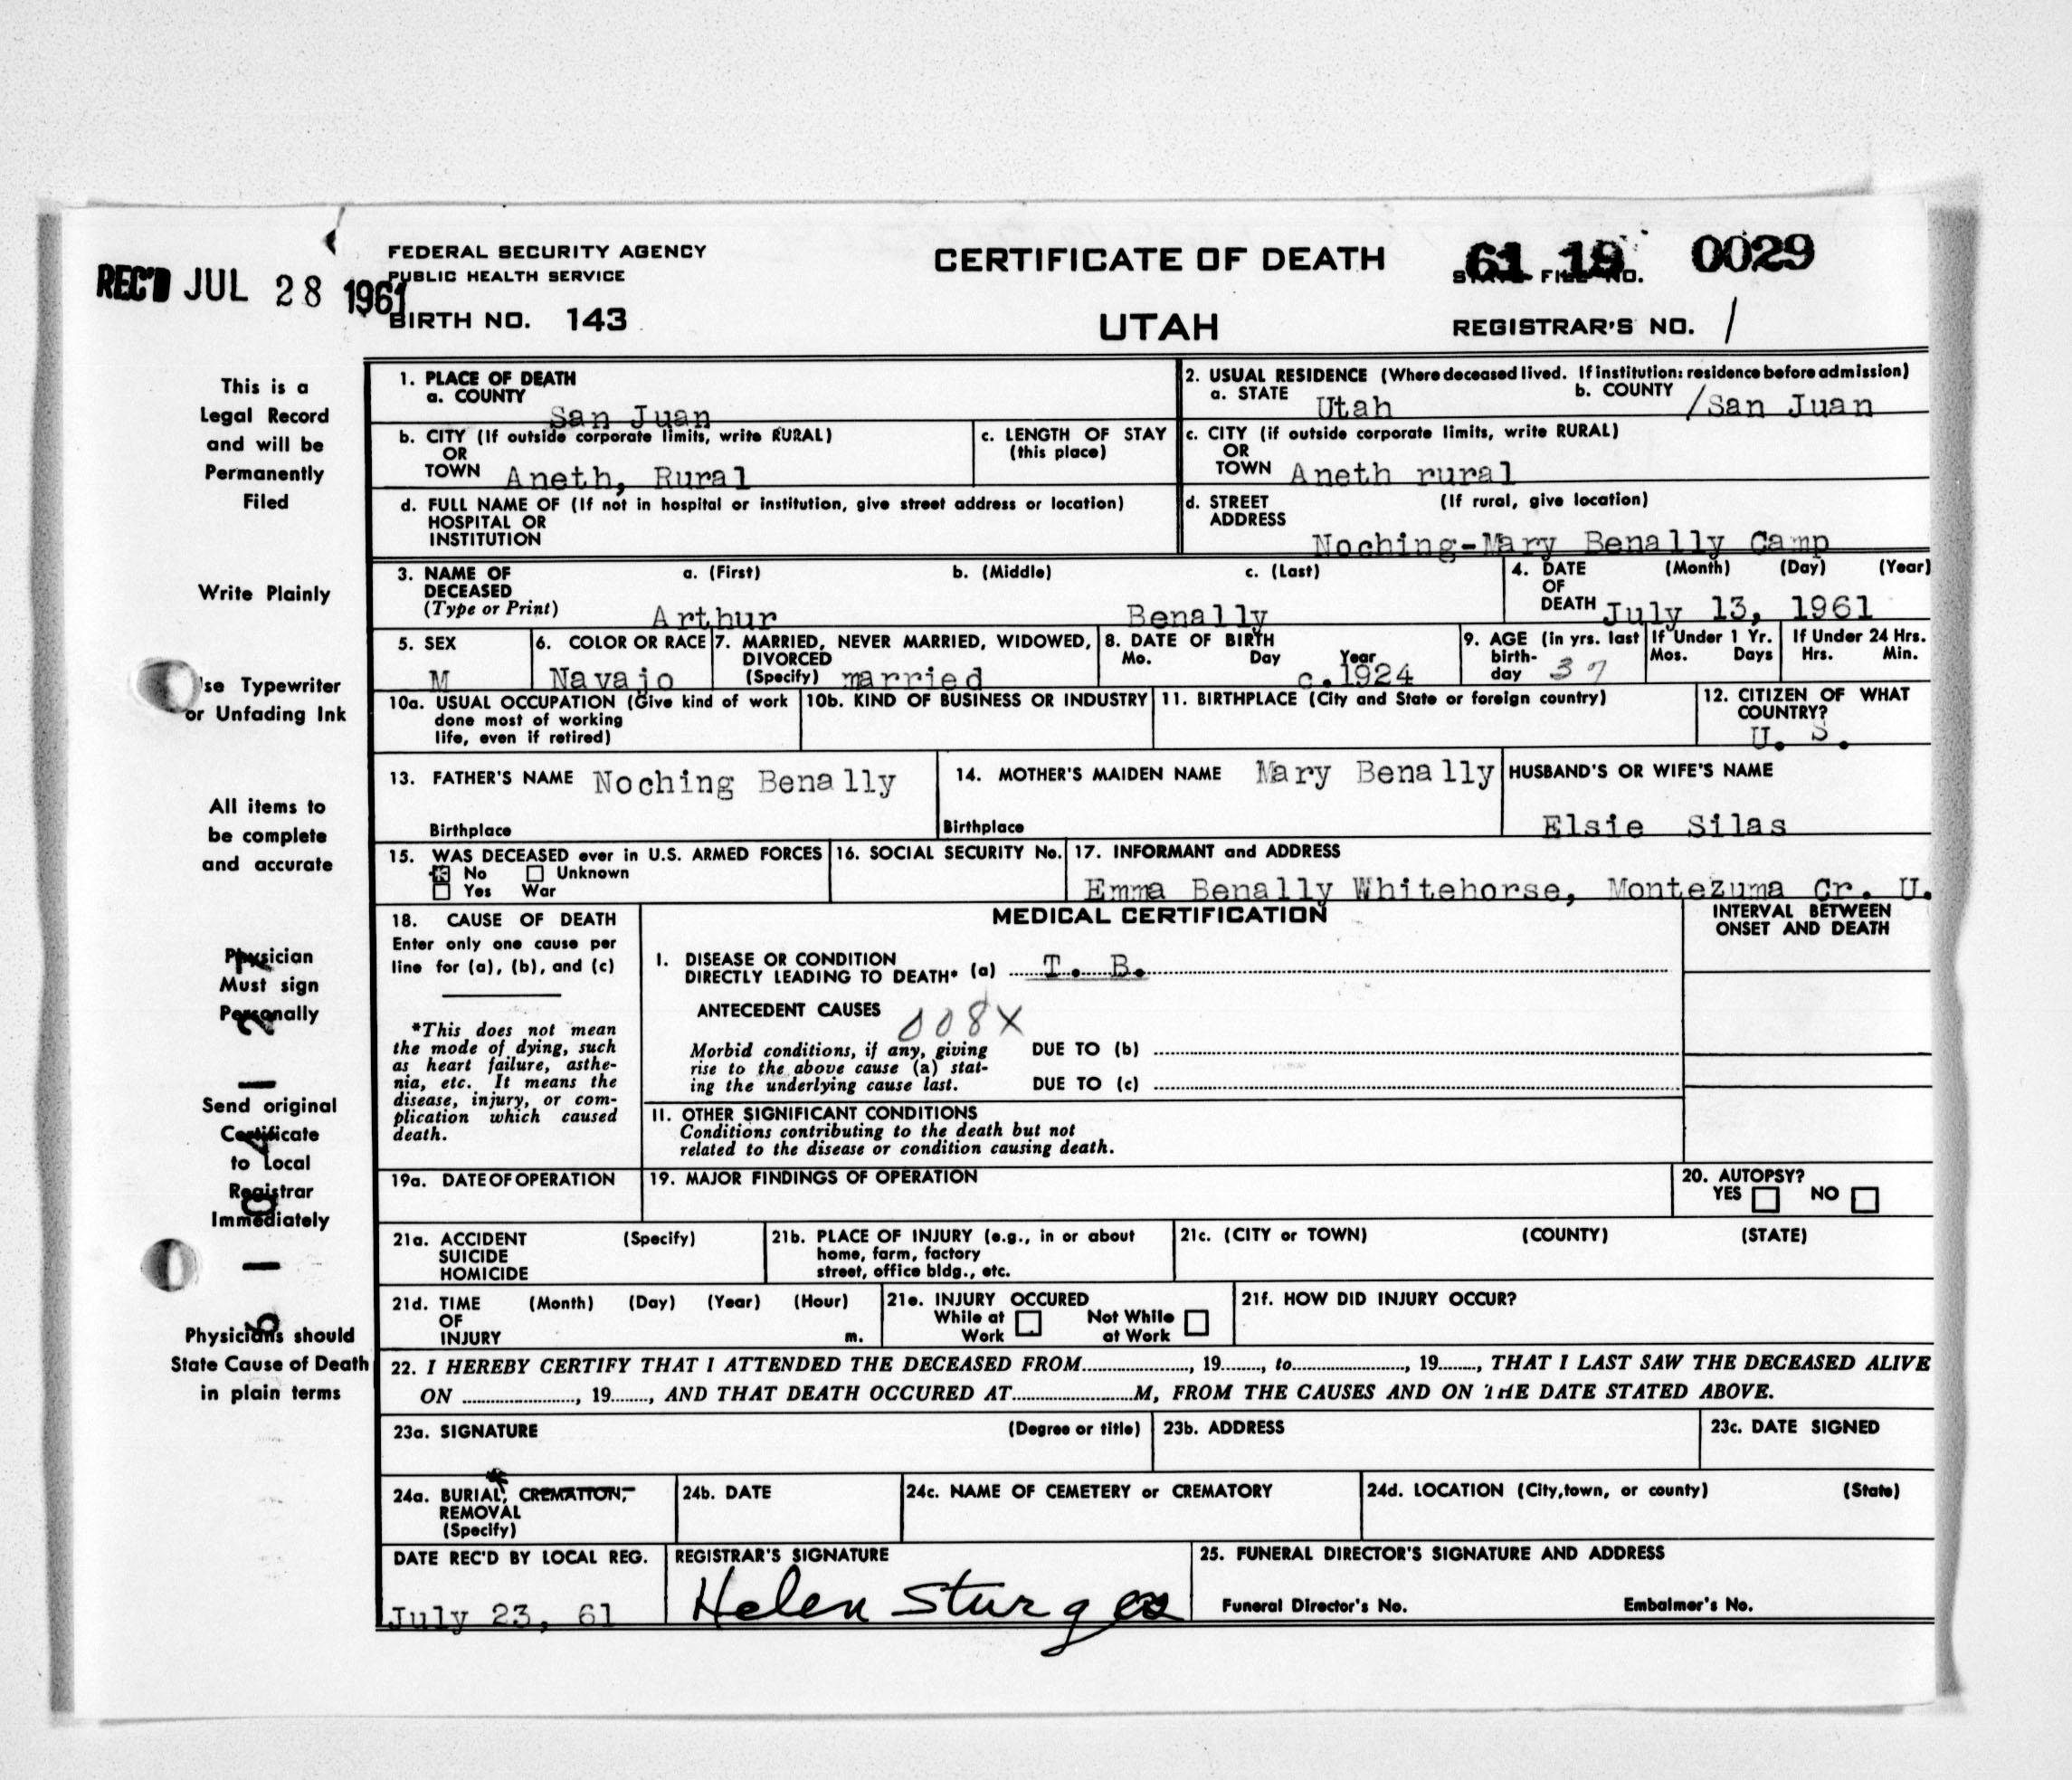 REC'D JUL 28 1961
FEDERAL SECURITY AGENCY
PUBLIC HEALTH SERVICE
BIRTH NO. 143
CERTIFICATE OF DEATH
UTAH
61 19 0029
STATE FILE NO.
REGISTRAR'S NO. 1
This is a
Legal Record
and will be
Permanently
Filed
Write Plainly
se Typewriter
or Unfading Ink
All items to
be complete
and accurate
Physician
Must sign
Personally
Send original
Certificate
to Local
Registrar
Immediately
Physicians should
State Cause of Death
in plain terms
1. PLACE OF DEATH
a. COUNTY San Juan
2. USUAL RESIDENCE (Where deceased lived. If institution: residence before admission)
a. STATE Utah b. COUNTY /San Juan
b. CITY (If outside corporate limits, write RURAL)
OR
TOWN Aneth, Rural
c. LENGTH OF STAY
(this place)
c. CITY (if outside corporate limits, write RURAL)
OR
TOWN Aneth rural
d. FULL NAME OF (If not in hospital or institution, give street address or location)
HOSPITAL OR
INSTITUTION
d. STREET (If rural, give location)
ADDRESS
Noching-Mary Benally Camp
3. NAME OF a. (First) b. (Middle) c. (Last)
DECEASED
(Type or Print) Arthur Benally
4. DATE (Month) (Day) (Year)
OF
DEATH July 13, 1961
5. SEX
M
6. COLOR OR RACE
Navajo
7. MARRIED, NEVER MARRIED, WIDOWED,
DIVORCED
(Specify) married
8. DATE OF BIRTH
Mo. Day Year
c.1924
9. AGE (in yrs. last
birth-
day 37
If Under 1 Yr.
Mos. Days
If Under 24 Hrs.
Hrs. Min.
10a. USUAL OCCUPATION (Give kind of work
done most of working
life, even if retired)
10b. KIND OF BUSINESS OR INDUSTRY
11. BIRTHPLACE (City and State or foreign country)
12. CITIZEN OF WHAT
COUNTRY?
U. S.
13. FATHER'S NAME Noching Benally
Birthplace
14. MOTHER'S MAIDEN NAME Mary Benally
Birthplace
HUSBAND'S OR WIFE'S NAME
Elsie Silas
15. WAS DECEASED ever in U.S. ARMED FORCES
No Unknown
Yes War
16. SOCIAL SECURITY No.
17. INFORMANT and ADDRESS
Emma Benally Whitehorse, Montezuma Cr. U.
18. CAUSE OF DEATH
Enter only one cause per
line for (a), (b), and (c)
*This does not mean
the mode of dying, such
as heart failure, asthe-
nia, etc. It means the
disease, injury, or com-
plication which caused
death.
MEDICAL CERTIFICATION
INTERVAL BETWEEN
ONSET AND DEATH
I. DISEASE OR CONDITION
DIRECTLY LEADING TO DEATH* (a) T. B.
ANTECEDENT CAUSES 008X
Morbid conditions, if any, giving
rise to the above cause (a) stat-
ing the underlying cause last.
DUE TO (b)
DUE TO (c)
II. OTHER SIGNIFICANT CONDITIONS
Conditions contributing to the death but not
related to the disease or condition causing death.
19a. DATE OF OPERATION
19. MAJOR FINDINGS OF OPERATION
20. AUTOPSY?
YES NO
21a. ACCIDENT (Specify)
SUICIDE
HOMICIDE
21b. PLACE OF INJURY (e.g., in or about
home, farm, factory
street, office bldg., etc.
21c. (CITY or TOWN) (COUNTY) (STATE)
21d. TIME (Month) (Day) (Year) (Hour)
OF
INJURY m.
21e. INJURY OCCURED
While at Not While
Work at Work
21f. HOW DID INJURY OCCUR?
22. I HEREBY CERTIFY THAT I ATTENDED THE DECEASED FROM............, 19......, to............, 19......, THAT I LAST SAW THE DECEASED ALIVE
ON ............, 19......, AND THAT DEATH OCCURED AT............M, FROM THE CAUSES AND ON THE DATE STATED ABOVE.
23a. SIGNATURE (Degree or title)
23b. ADDRESS
23c. DATE SIGNED
24a. BURIAL, CREMATION,
REMOVAL
(Specify)
24b. DATE
24c. NAME OF CEMETERY or CREMATORY
24d. LOCATION (City,town, or county) (State)
DATE REC'D BY LOCAL REG.
July 23, 61
REGISTRAR'S SIGNATURE
Helen Sturges
25. FUNERAL DIRECTOR'S SIGNATURE AND ADDRESS
Funeral Director's No. Embalmer's No.